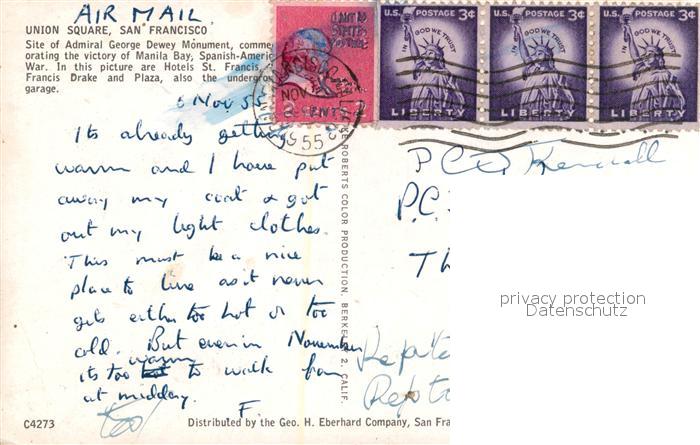 AIR MAIL
UNION SQUARE, SAN FRANCISCO
Site of Admiral George Dewey Monument, comme
orating the victory of Manila Bay, Spanish-Americ
War. In this picture are Hotels St. Francis,
Francis Drake and Plaza, also the undergrou
garage.
6 Nov 55
Its already getting
warm and I have put
away my coat & got
out my light clothes.
This must be a nice
place to live as it never
gets either too hot or too
cold. But even in November
its too warm to walk far
at midday.
F.
C4273
Distributed by the Geo. H. Eberhard Company, San Fra
MIKE ROBERTS COLOR PRODUCTION, BERKELEY 2, CALIF.
UNITED STATES POSTAGE
2 CENTS 2
NOV
55
U.S. POSTAGE 3¢
IN GOD WE TRUST
LIBERTY
U.S. POSTAGE 3¢
IN GOD WE TRUST
LIBERTY
U.S. POSTAGE 3¢
IN GOD WE TRUST
LIBERTY
P.C.
Th
privacy protection
Datenschutz